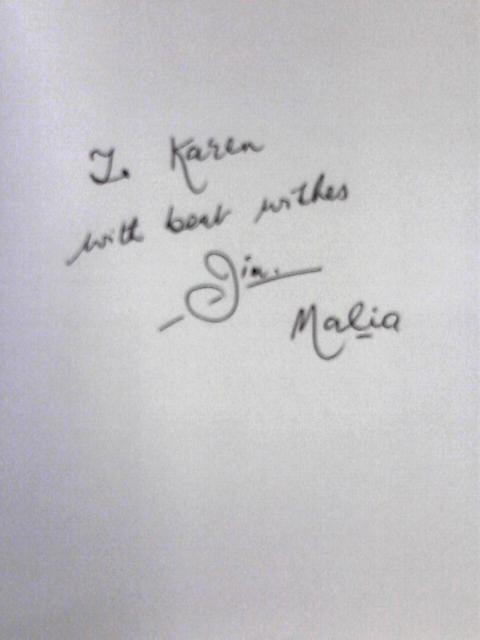 To Karen
with best wishes
Jim.
Malia